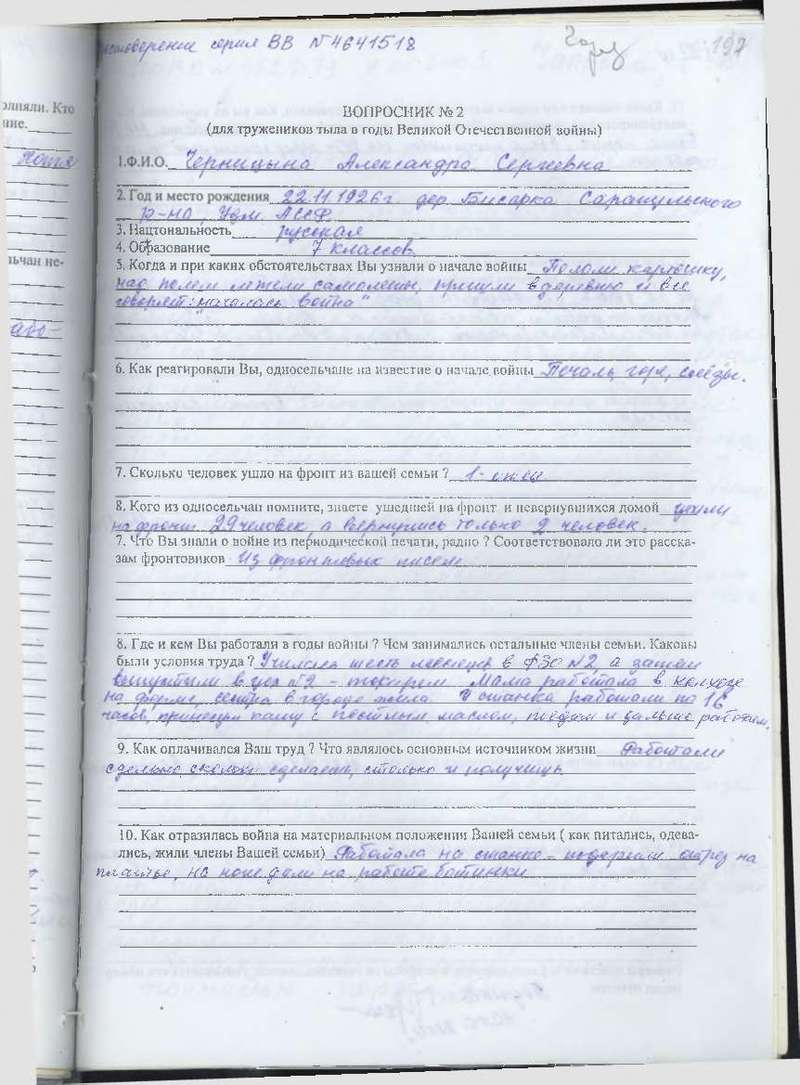 удостоверение серия ВВ №4641518
197
ВОПРОСНИК № 2
(для тружеников тыла в годы Великой Отечественной войны)
1.Ф.И.О. Черницына Александра Сергеевна
2. Год и место рождения 22.11.1926г дер Бисарка Сарапульского
р-на, Удм. АССР
3. Нацтональность русская
4. Образование 7 классов
5. Когда и при каких обстоятельствах Вы узнали о начале войны Пололи картошку,
над полем летели самолеты, пришли в деревню и все
говорят: "началась война"
6. Как реагировали Вы, односельчане на известие о начале войны Печаль, горе, слёзы.
7. Сколько человек ушло на фронт из вашей семьи ? 1- отец
8. Кого из односельчан помните, знаете ушедшей на фронт и невернувшихся домой ушли
на фронт 29 человек, а вернулись только 2 человек.
7. Что Вы знали о войне из периодической печати, радио ? Соответствовало ли это расска-
зам фронтовиков Из фронтовых писем
8. Где и кем Вы работали в годы войны ? Чем занимались остальные члены семьи. Каковы
были условия труда ? Училась шесть месяцев в ФЗО №2, а затем
выпустили в цех №2 - токарем. Мама работала в колхозе
на ферме, сестра в городе жила. У станка работали по 16
часов, принесут кашу с постным маслом, поедим и дальше работаем.
9. Как оплачивался Ваш труд ? Что являлось основным источником жизни Работали
сдельно сколько сделаешь, столько и получишь
10. Как отразилась война на материальном положения Вашей семьи ( как питались, одева-
лись, жили члены Вашей семьи) Работала на станке - подарили отрез на
платье, на ноги дали на работе ботинки